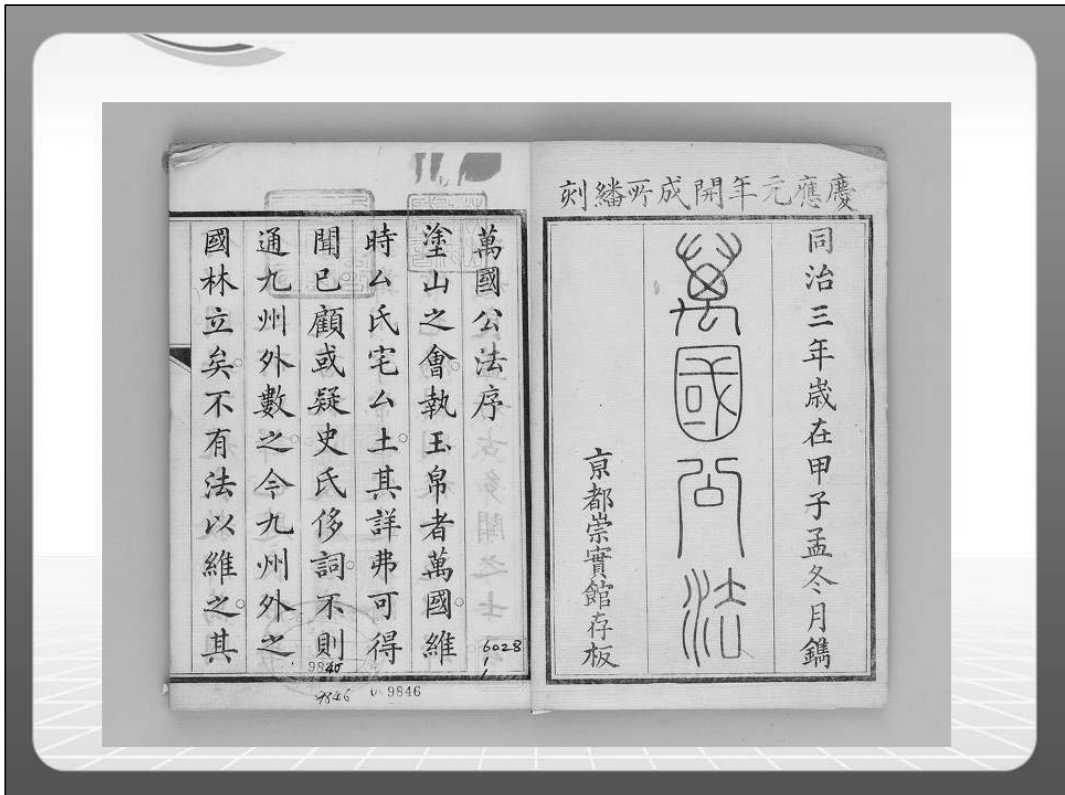 慶應元年開成所繙刻
同治三年歲在甲子孟冬月鐫
萬國公法
京都崇實館存板
萬國公法序
塗山之會。執玉帛者萬國。維
時厶氏宅厶土。其詳弗可得
聞已顧或疑史氏侈詞。不則
通九州外數之。今九州外之
國林立矣。不有法以維之。其
6028
1
9846
9846
9846